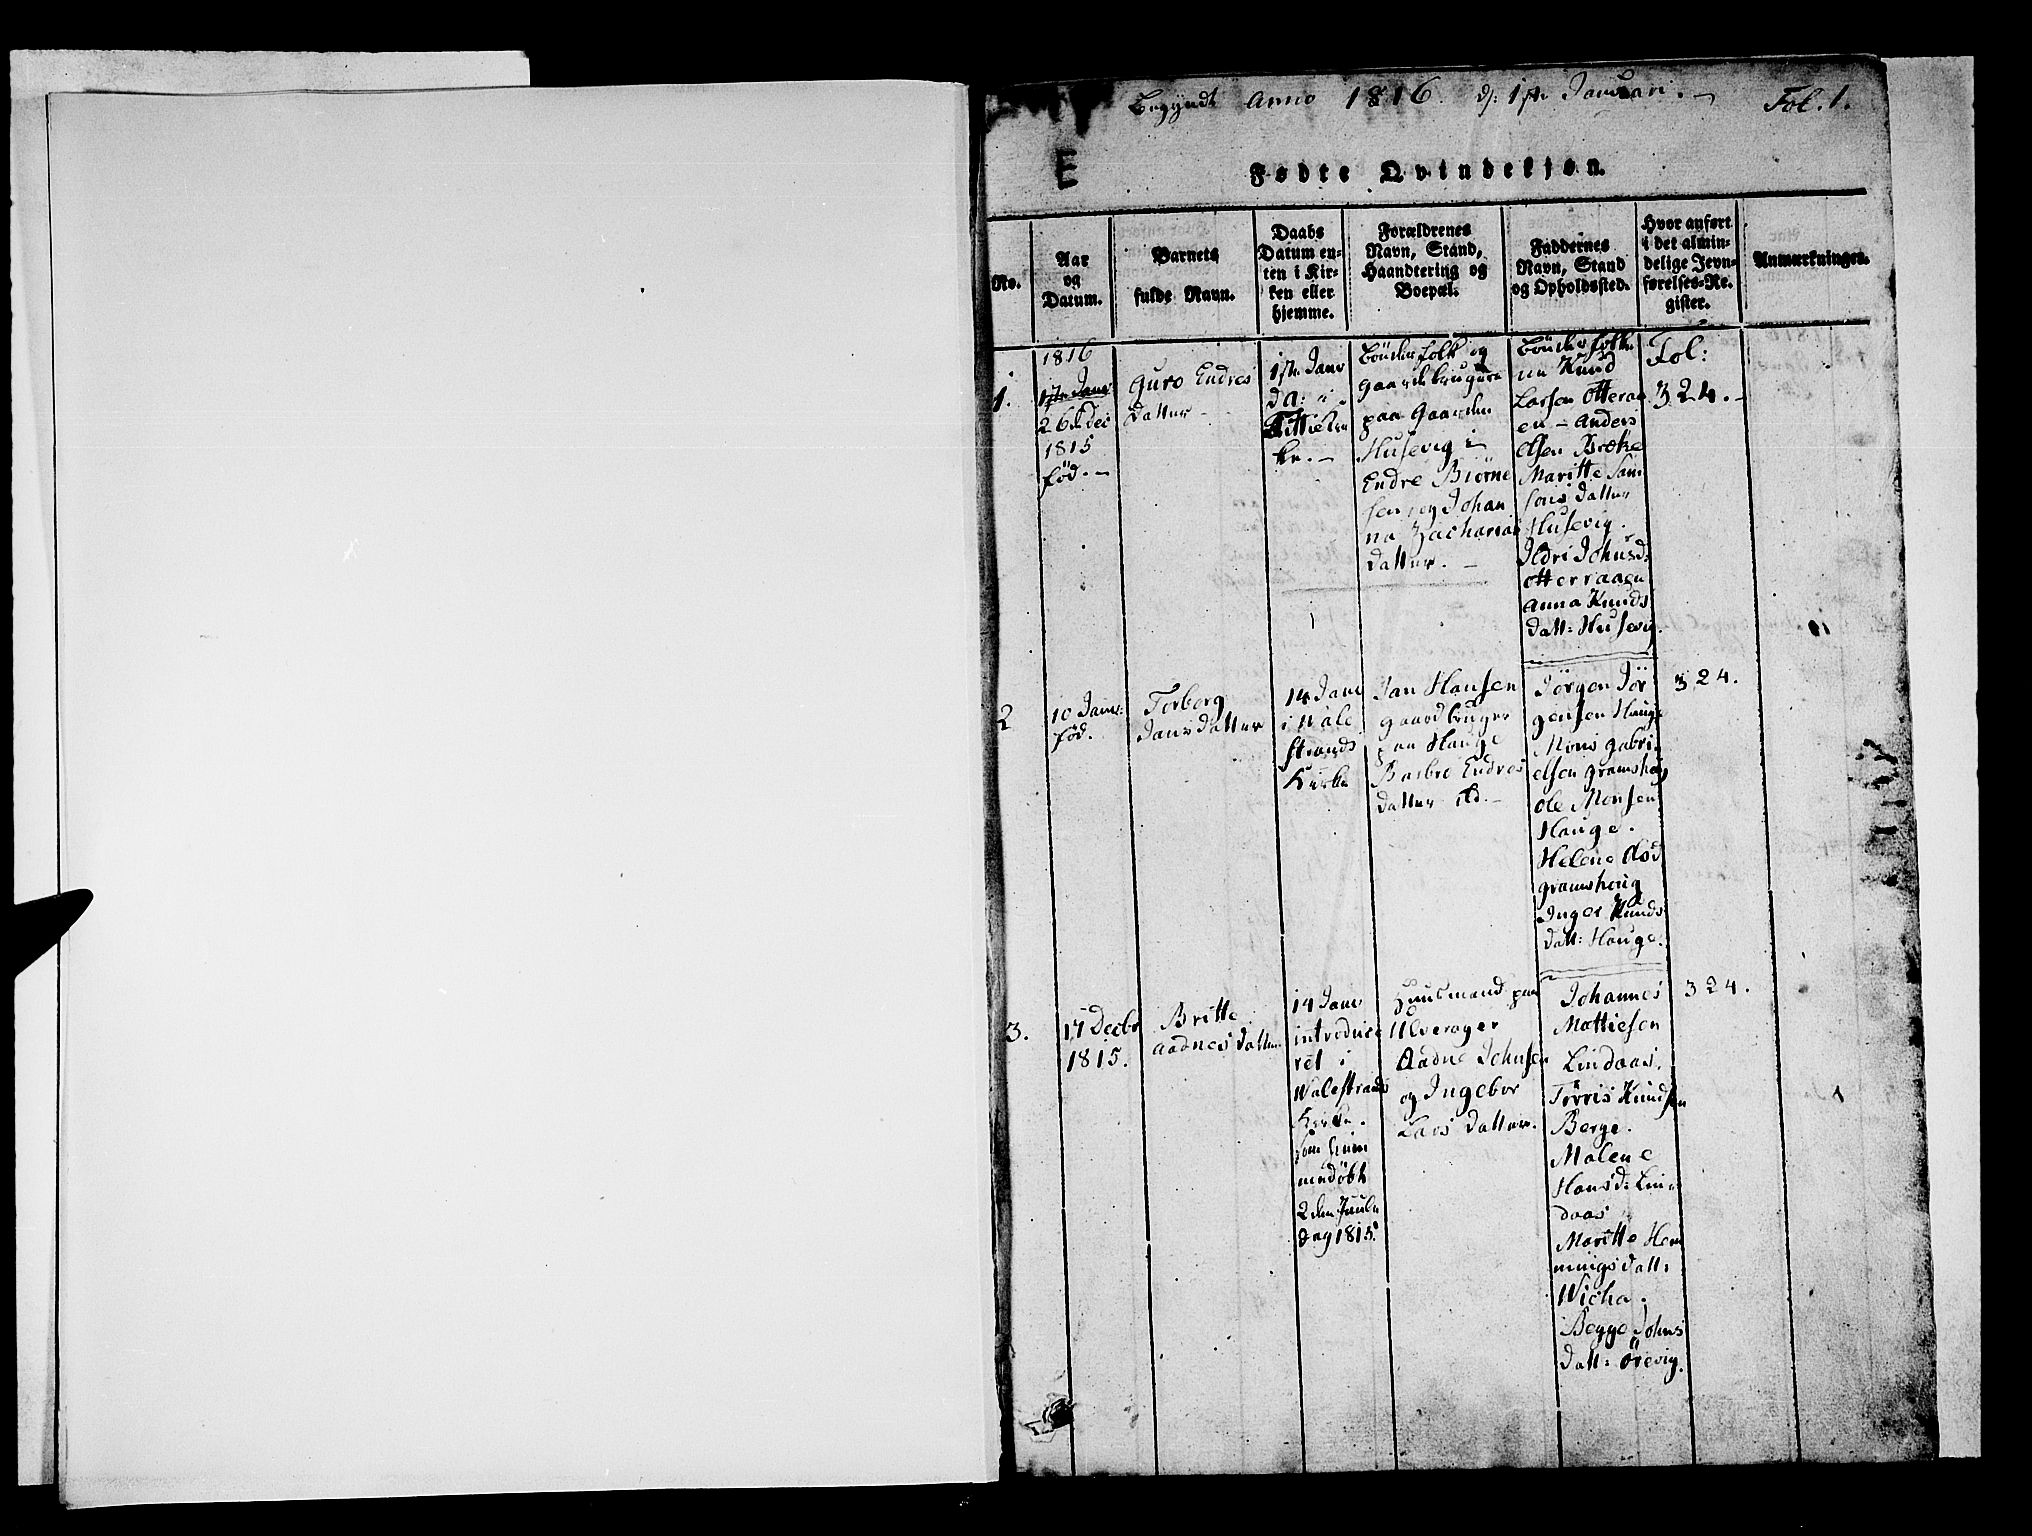 Begyndt Anno 1816. d: 1ste Januari.
Fol. 1.
E
Fødte Qvindekjøn.
No.
Aar
og
Datum.
Barnets
fulde Navn.
Daabs
Datum en-
ten i Kir-
ken eller
hjemme.
Forældrenes
Navn, Stand,
Haandtering og
Boepæl.
Faddernes
Navn, Stand
og Opholdssted.
Hvor anført
i det almin-
delige Jevn-
førelses-Re-
gister.
Anmærkninger.
1.
1816
1ste Janr
26 Dec
1815
fød.
Guro Endres
datter
1ste Janr
da: i
Kirke
Bønderfolk og
Gaardbrugere
paa Gaarden
Husevig
Endre Biørne
sen og Johan
na Zacharias
datter.
Bønderfolke
ne Knud
Larsen Otteraa
en - Anders
Olsen Bræke
Maritte Sam
sons datter
Husevig.
Ildri Johnsd:
Otterraaen
Anna Knuds
datt: Husevig.
Fol:
324.
2
10 Janr:
fød.
Torborg
Jans datter
14 Janr
i Wale
strands
Kirke
Jan Hansen
Gaardbruger
paa Hauge
Barbro Endres
datter ibd.
Jørgen Jør
gensen Hauge
Mons Gabri
elsen Gramshoug
Ole Monsen
Hauge.
Helene Olsd
Gramshoug
Inger Knuds
datt: Hauge.
324.
3.
17 Decbr
1815.
Britte
Aadnes datter
14 Janr
introduce
ret i
Walestrands
Kirke.
som hiem
medøbt
2den Juule
dag 1815.
Huusmand paa
Ulverager
Aadne Johnsen
og Ingebor
Lars datter.
Johannes
Mattiesen
Lindaas.
Tørris Knudsen
Berge.
Malene
Hansd: Lin
daas
Maritte Hem
mings datt:
Wicha.
Begge Johns
datt: Ørevig.
324.